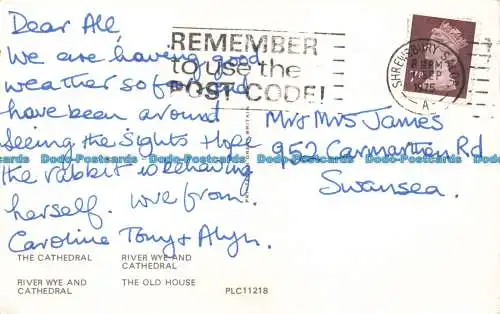 Dear All,
We are having good
weather so far and
have been around
Seeing the Sights Hope
the rabbit is behaving
herself. love from.
Caroline Tony + Alyn.
REMEMBER
to use the
POST CODE!
SHREWSBURY
1975
A
Mr & Mrs James
952 Carmarthen Rd
Swansea.
Dodo-Postcards Dodo-Postcards Dodo-Postcards Dodo-Postcards Dodo-Postcards
THE CATHEDRAL
RIVER WYE AND
CATHEDRAL
RIVER WYE AND
CATHEDRAL
THE OLD HOUSE
PLC11218